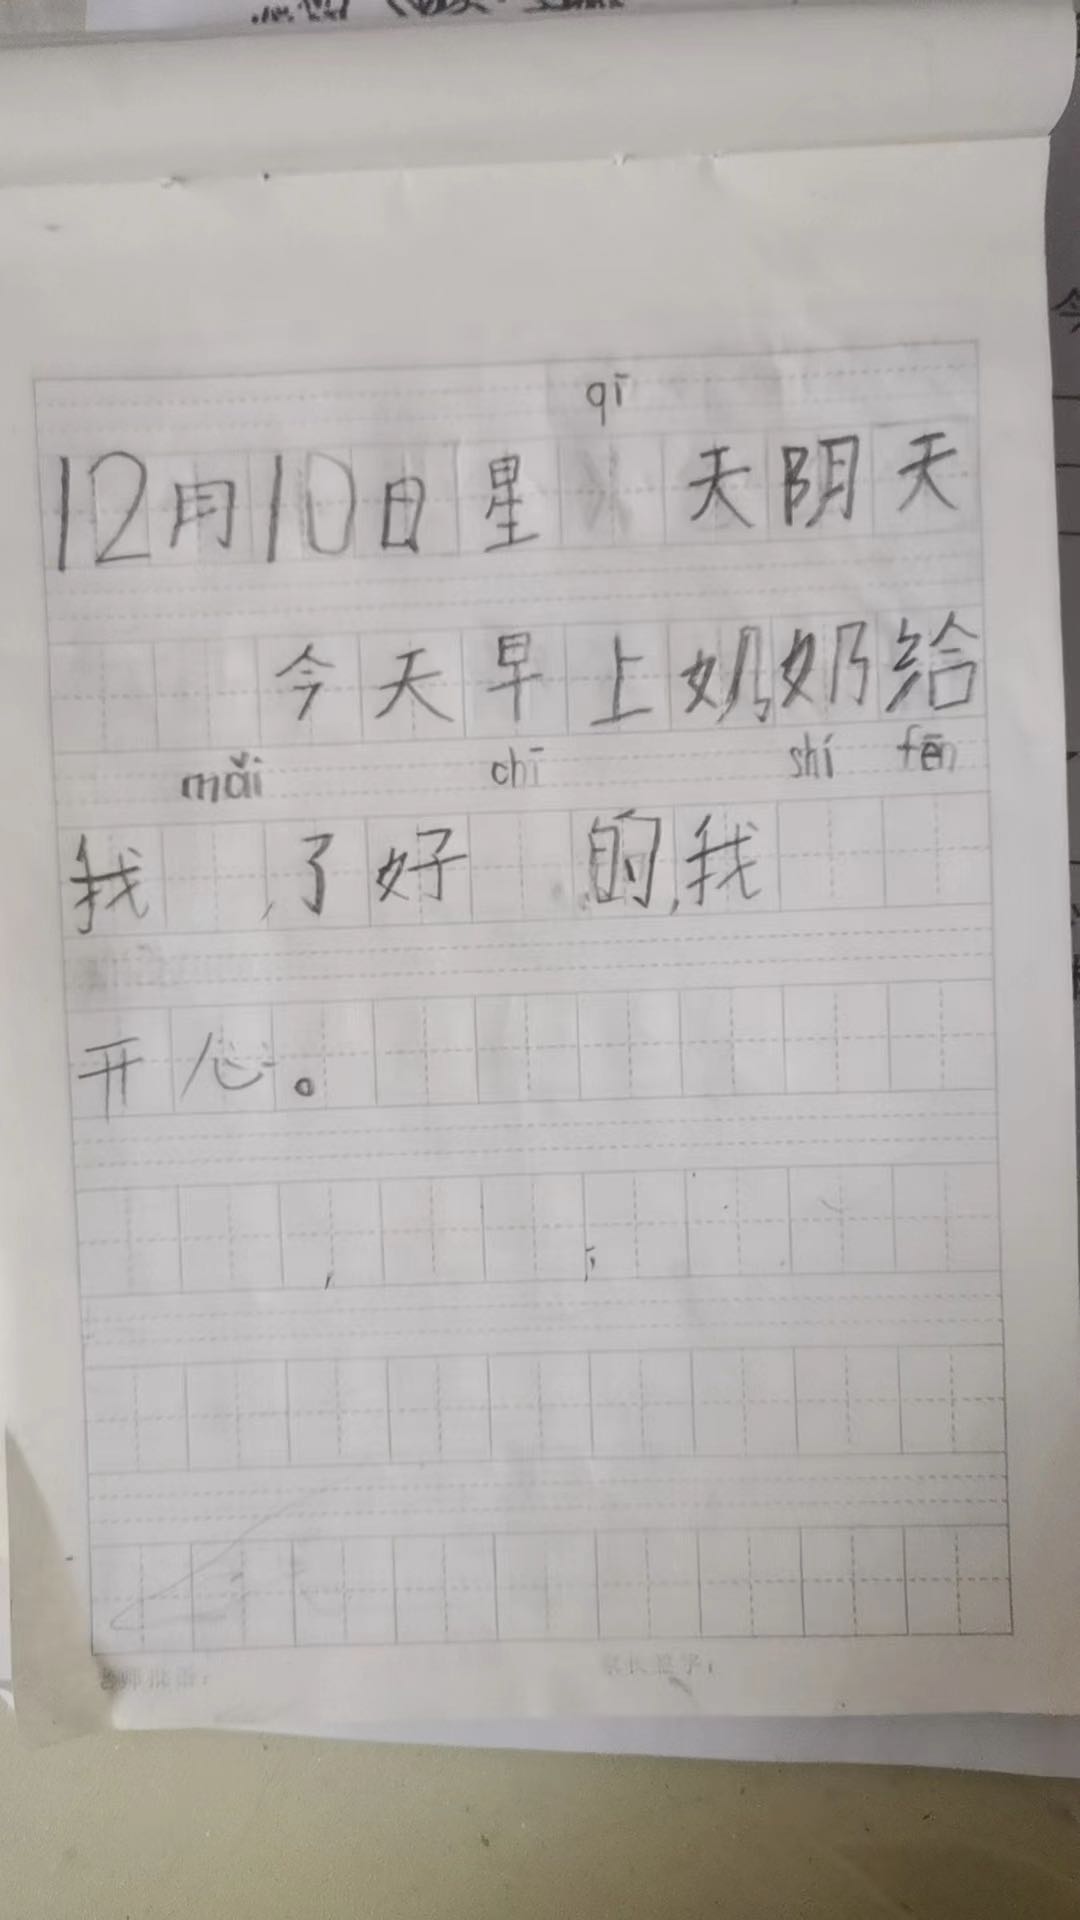 qī
12月10日星 天阴天
今天早上奶奶给
mǎi chī shí fēn
我 了好 的,我
开心。
老师批语： 家长签字：